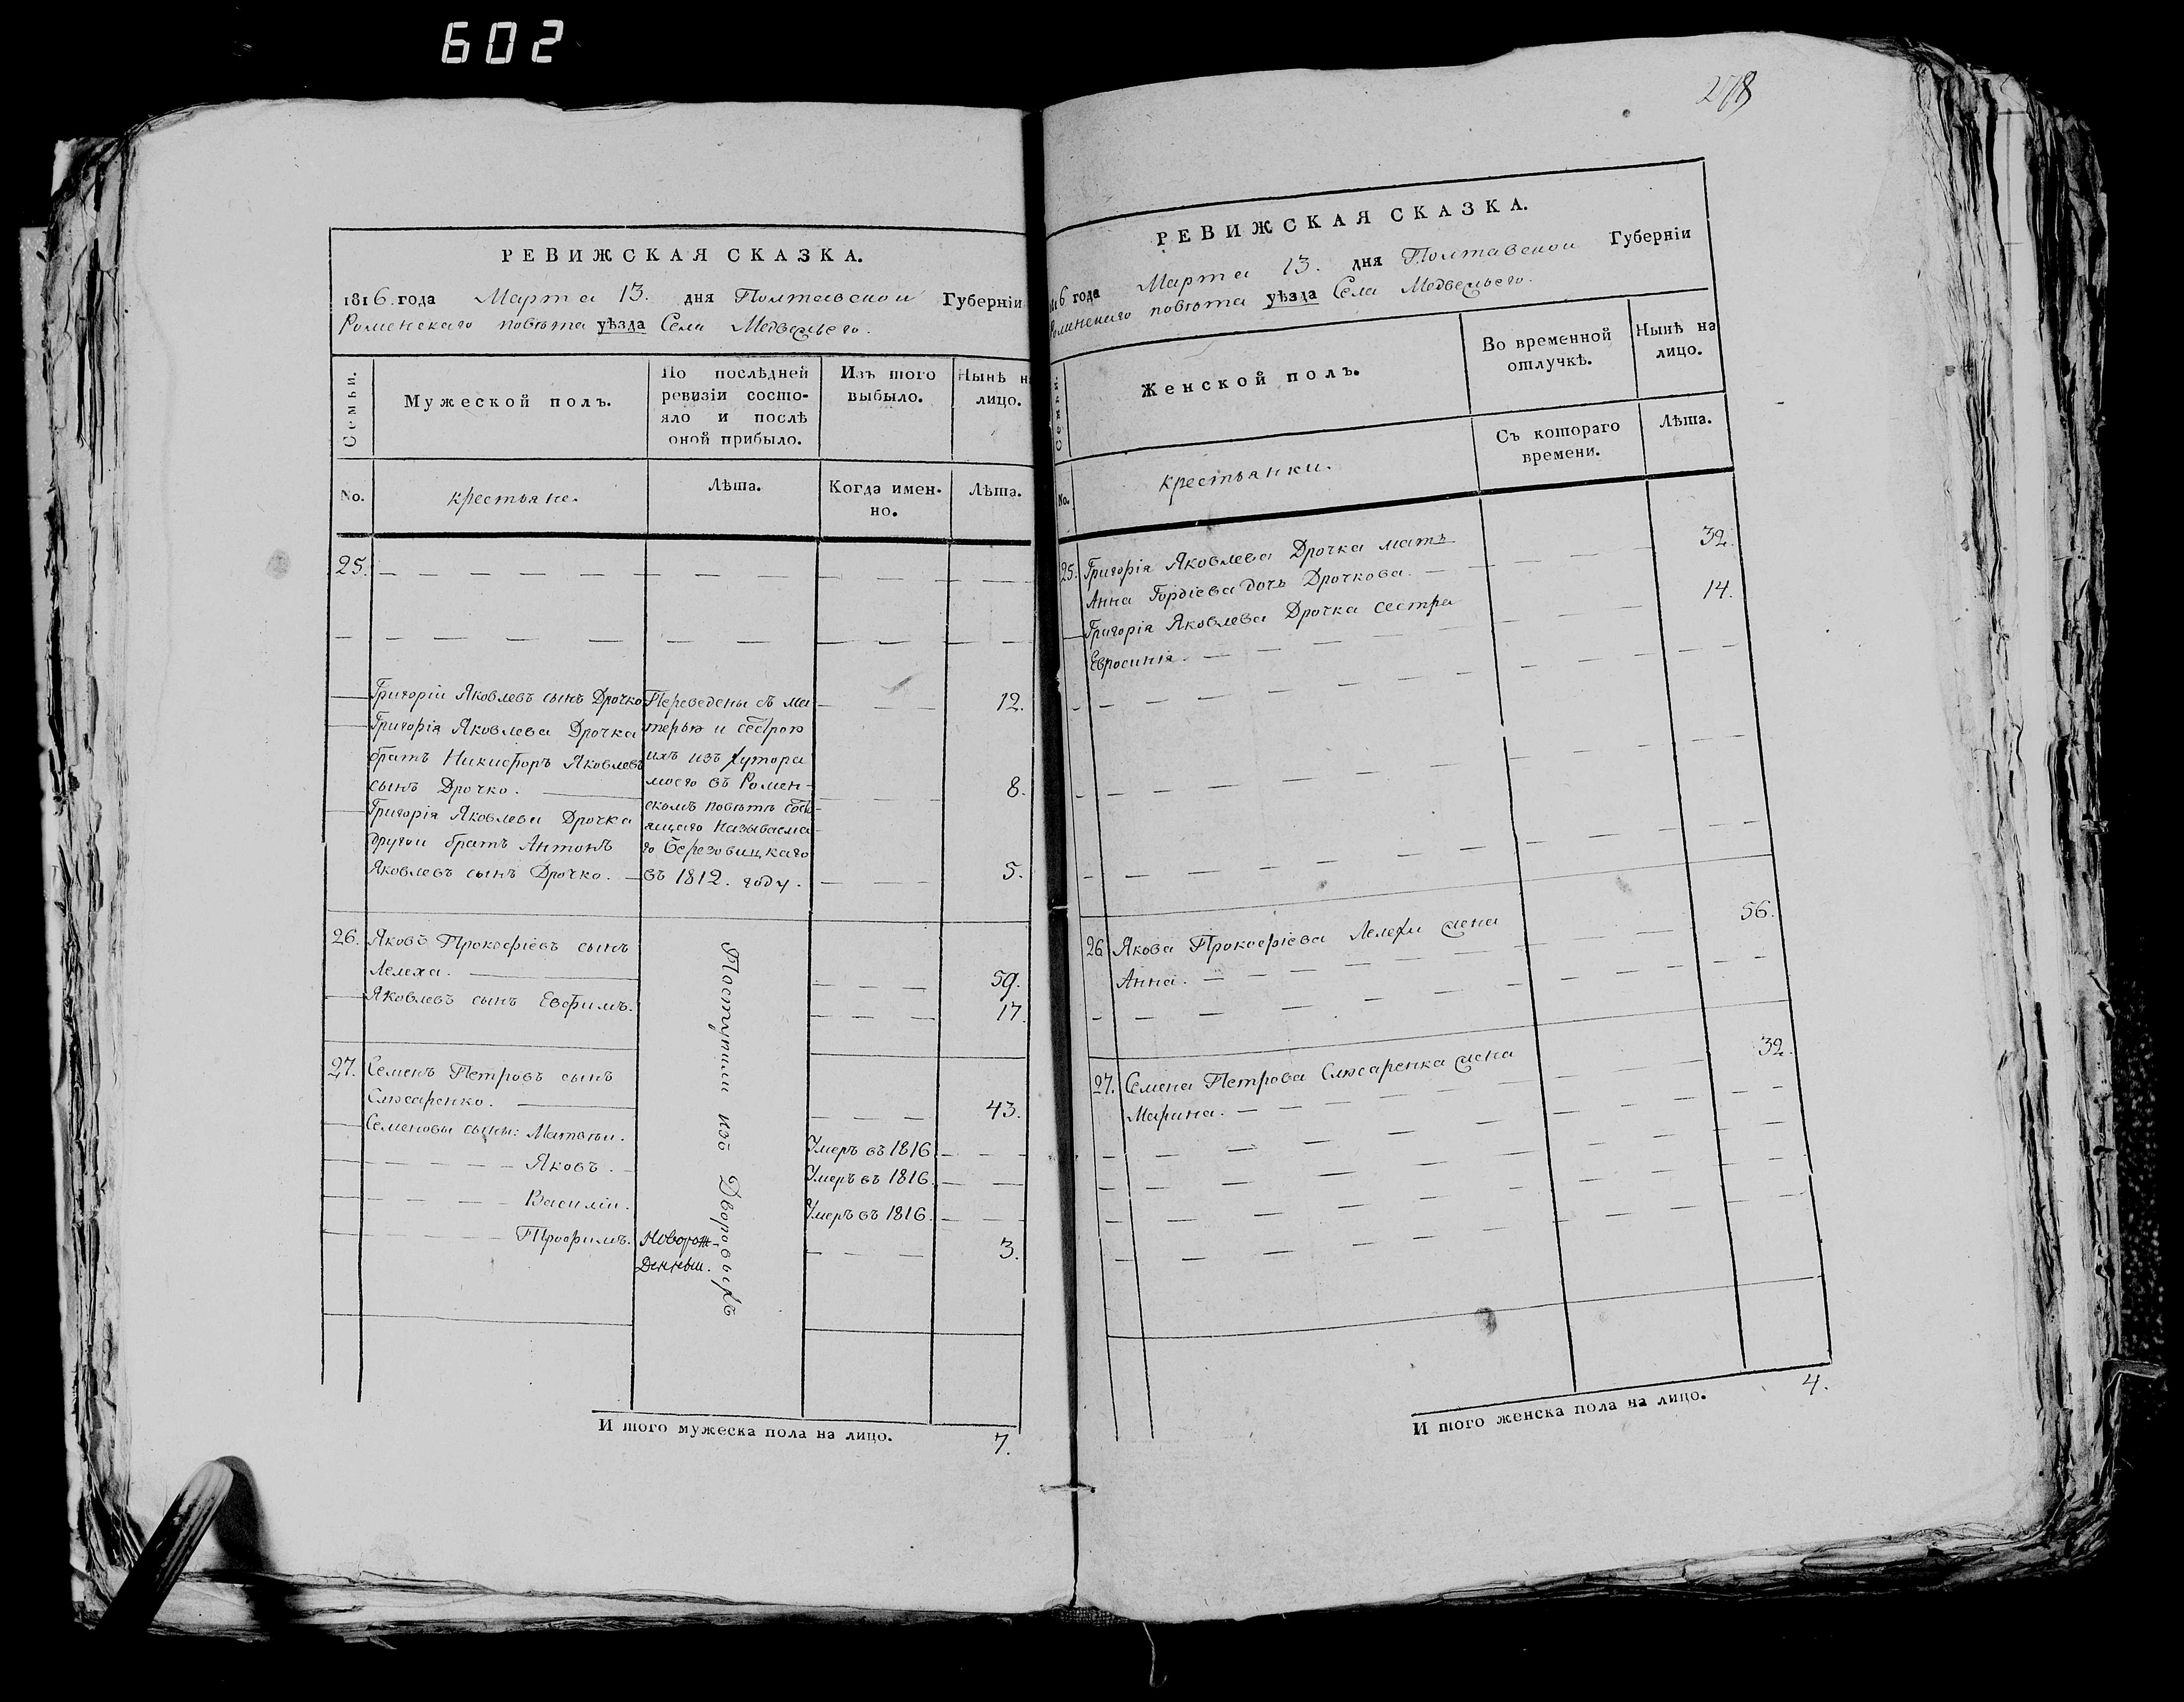 602
РЕВИЖСКАЯ СКАЗКА.
1816. года Марта 13. дня Полтавской Губерніи
Роменскаго повѣта уѣзда Села Медвежьего.
Семьи.
Мужеской полъ.
По послѣдней
ревизіи состо-
яло и послѣ
оной прибыло.
Изъ того
выбыло.
Нынѣ на
лицо.
No.
крестьяне.
Лѣта.
Когда имен-
но.
Лѣта.
25.
Григорій Яковлевъ сынъ Дрочко
12.
Григорія Яковлева Дрочка
братъ Никифоръ Яковлевъ
сынъ Дрочко.
8.
Григорія Яковлева Дрочка
другой братъ Антонъ
Яковлевъ сынъ Дрочко.
5.
Переведены съ ма
терью и сестрою
ихъ изъ хутора
моего въ Ромен-
скомъ повѣтѣ состо
ящаго называема
го Березовицкаго
въ 1812. году.
26. Яковъ Прокофіевъ сынъ
Лелеха. 59.
Яковлевъ сынъ Евфимъ. 17.
27. Семенъ Петровъ сынъ
Слюсаренко. 43.
Семеновы сыны: Матвѣй. Умеръ въ 1816
Яковъ. Умеръ въ 1816.
Василій. Умеръ въ 1816.
Трофимъ. Новорож-
денный. 3.
Поступили изъ Дворовыхъ
И того мужеска пола на лицо. 7.
278
РЕВИЖСКАЯ СКАЗКА.
1816 года Марта 13. дня Полтавской Губерніи
Роменскаго повѣта уѣзда Села Медвежьего.
Семьи.
Женской полъ.
Во временной
отлучкѣ.
Нынѣ на
лицо.
No.
крестьянки.
Съ котораго
времени.
Лѣта.
25. Григорія Яковлева Дрочка мать 32.
Анна Гордіева дочь Дрочкова.
Григорія Яковлева Дрочка сестра 14.
Евросинія.
26 Якова Прокофіева Лелехи жена 56.
Анна.
27. Семена Петрова Слюсаренка жена 32.
Марина.
И того женска пола на лицо. 4.